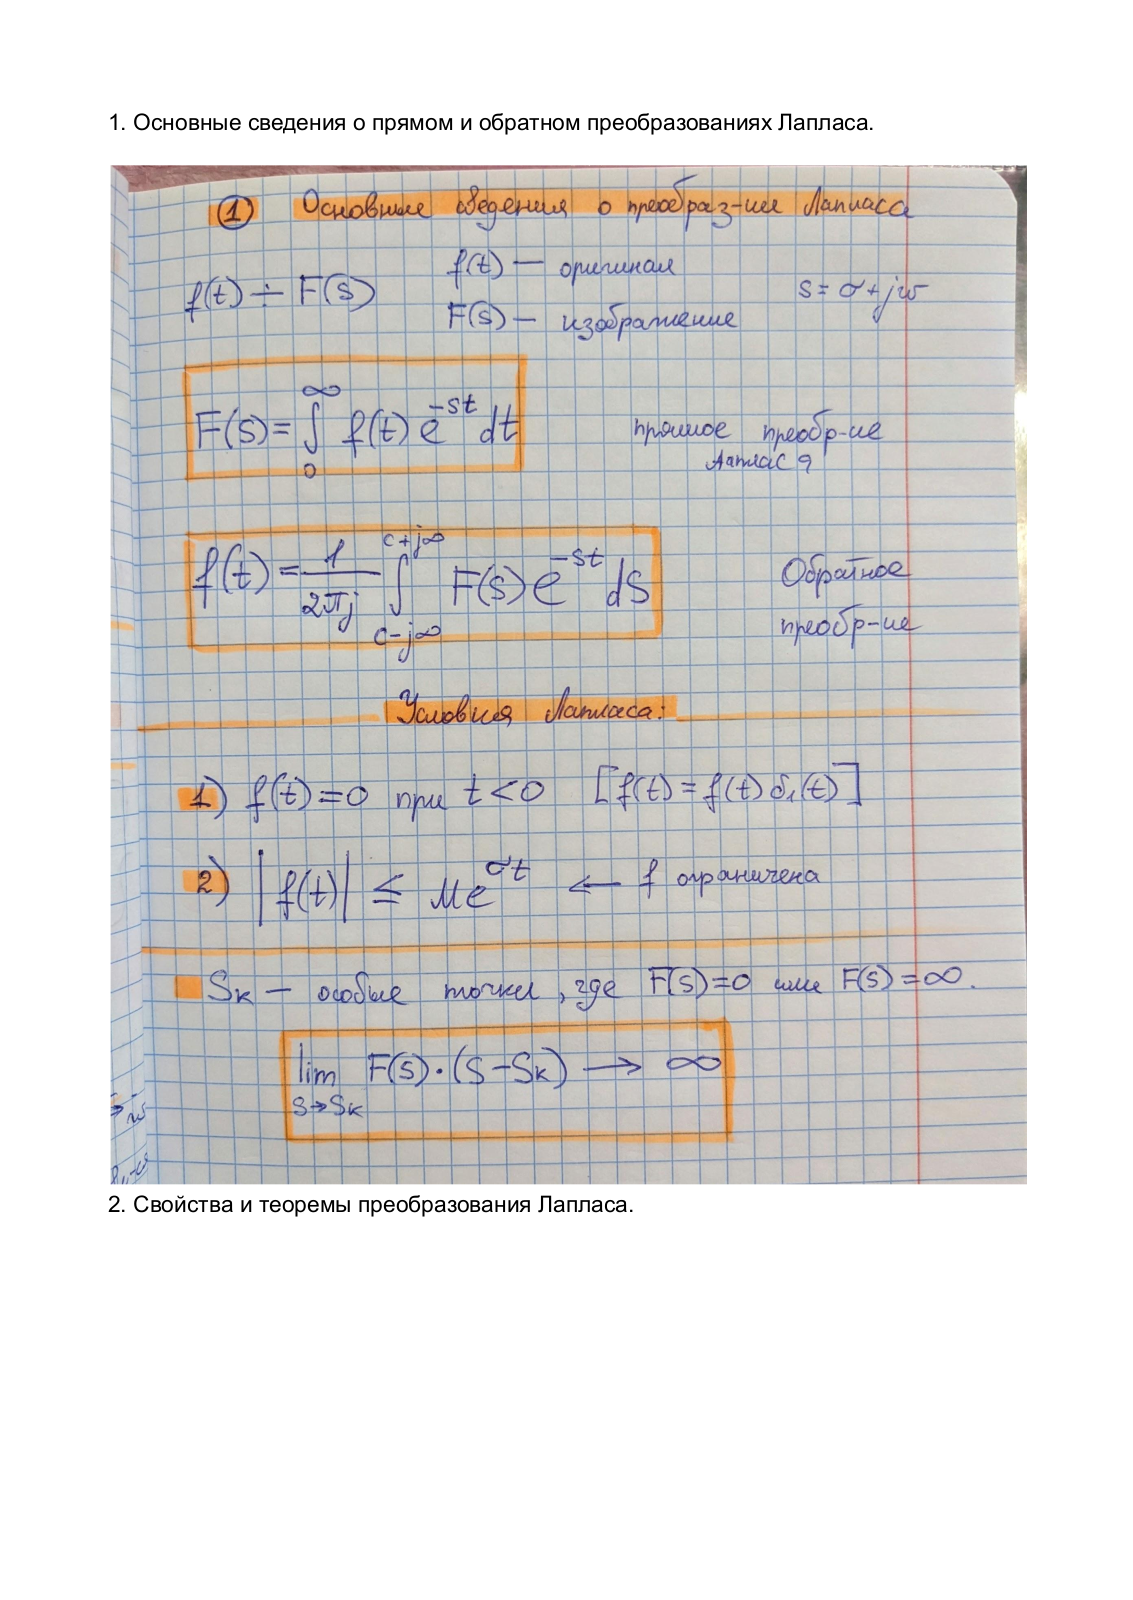 1. Основные сведения о прямом и обратном преобразованиях Лапласа.
1 Основные сведения о преобраз-ии Лапласа
f(t) ÷ F(s)
f(t) — оригинал
F(s) — изображение
s = σ + jω
F(s) = ∫₀^∞ f(t) e^{-st} dt
прямое преобр-ие
Лапласа
f(t) = 1/(2πj) ∫_{c-j∞}^{c+j∞} F(s) e^{-st} ds
Обратное
преобр-ие
Условия Лапласа:
1) f(t) = 0 при t < 0 [f(t) = f(t) δ₁(t)]
2) |f(t)| ≤ Me^{σt} ← f ограничена
Sₖ — особые точки, где F(s)=0 или F(s)=∞.
lim_{s→Sₖ} F(s)·(s−Sₖ) → ∞
2. Свойства и теоремы преобразования Лапласа.